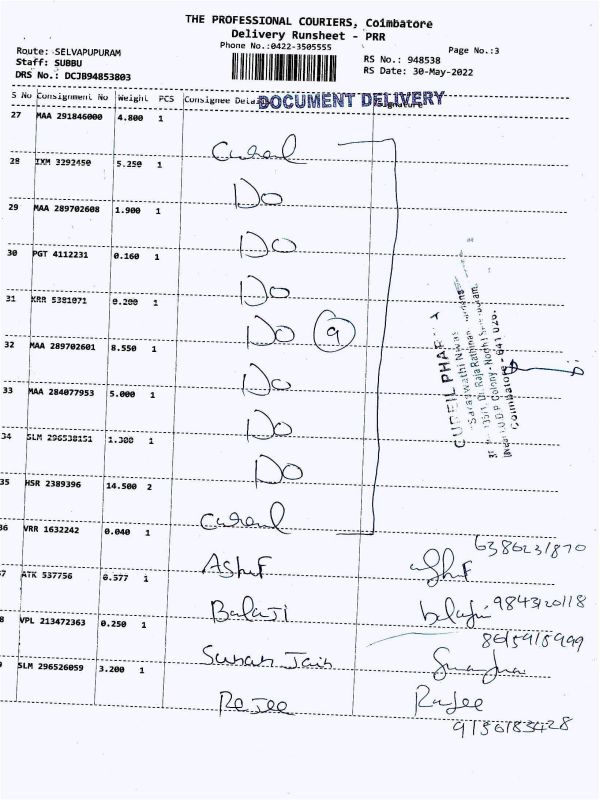 THE PROFESSIONAL COURIERS, Coimbatore
Delivery Runsheet - PRR
Phone No.:0422-3505555
Page No.:3
Route: SELVAPUPURAM
Staff: SUBBU
DRS No.: DCJB94853803
RS No.: 948538
RS Date: 30-May-2022
S No Consignment No Weight PCS Consignee Details Signature
DOCUMENT DELIVERY
27 MAA 291846000 4.800 1
28 IXM 3292450 5.250 1 Do
29 MAA 289702608 1.900 1 Do
30 PGT 4112231 0.160 1 Do
31 KRR 5381071 0.200 1 Do 9
32 MAA 289702601 8.550 1 Do
33 MAA 284077953 5.000 1 Do
34 SLM 296538151 1.300 1 Do
35 HSR 2389396 14.500 2
36 VRR 1632242 0.040 1 Ashif
6386231870
37 ATK 537756 0.377 1 Balaji balaji 9843120118
38 VPL 213472363 0.250 1 Jain
8615915999
39 SLM 296526059 3.200 1 Rajee Rajee
9156183428
Saraswathi Nivas
Coimbatore